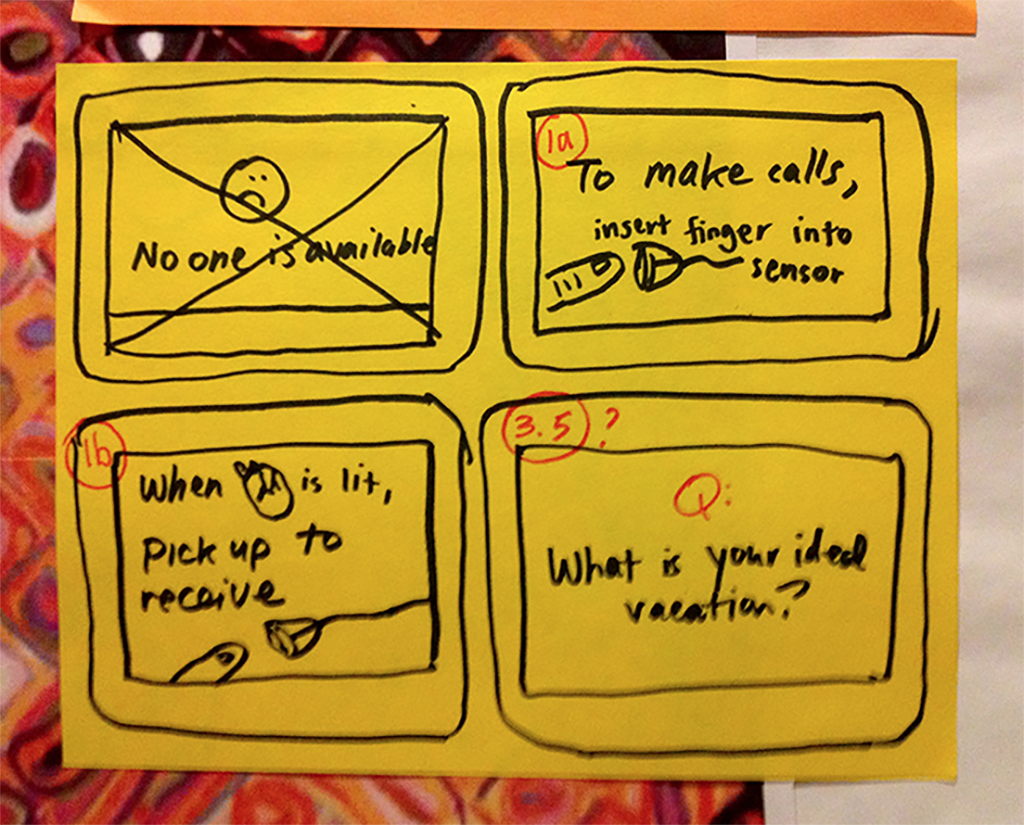 No one is available
1a
To make calls,
insert finger into
sensor
1b
When is lit,
pick up to
receive
3.5 ?
Q:
What is your ideal
vacation?